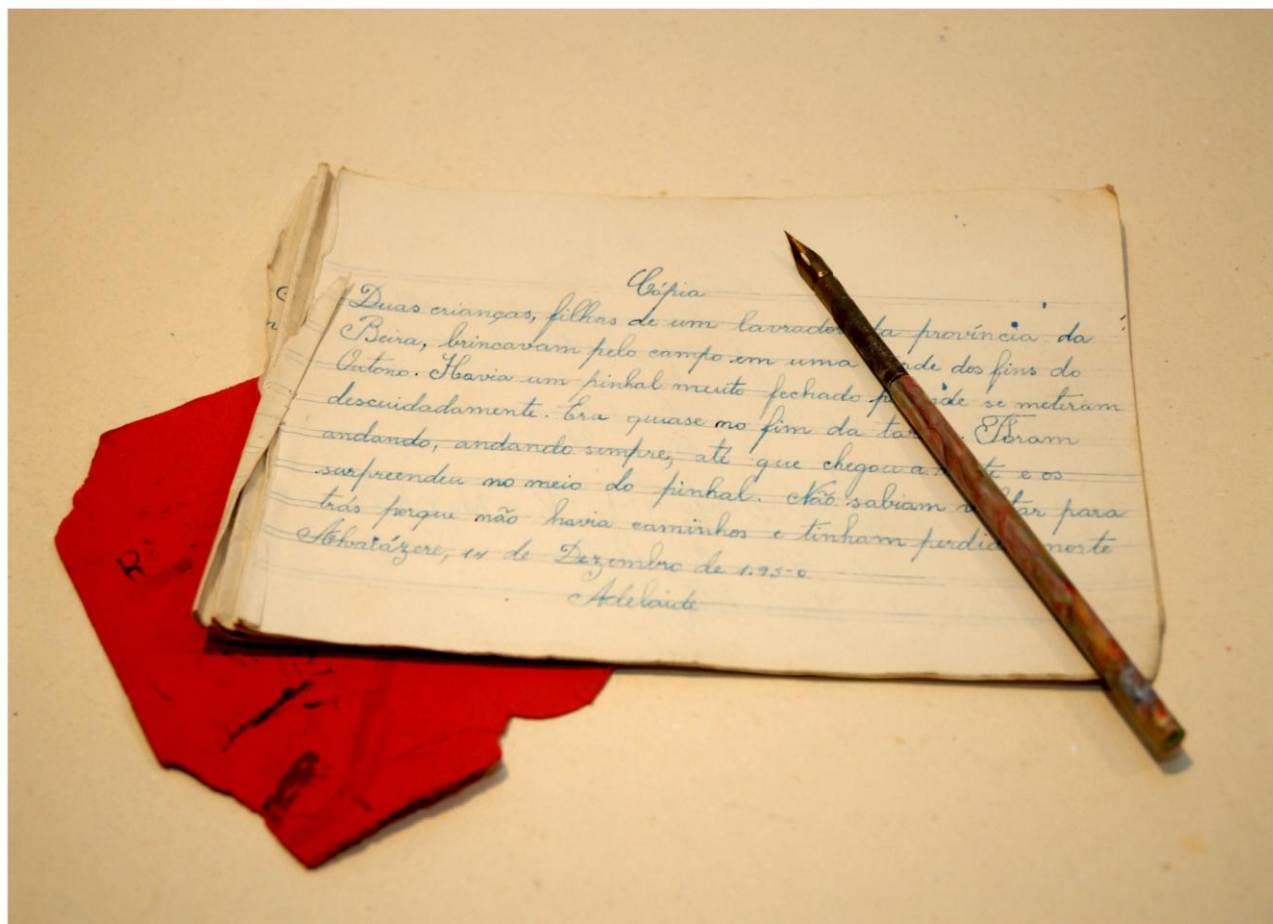 Cópia
Duas crianças, filhas de um lavrador da província da
Beira, brincavam pelo campo em uma dos fins do
Outono. Havia um pinhal muito fechado se meteram
descuidadamente. Era quase no fim da Foram
andando, andando sempre, até que chegou a e os
surpreendeu no meio do pinhal. Não sabiam para
trás porque não havia caminhos e tinham
Alvaiázere, 14 de Dezembro de 1.950
Adelaide
R